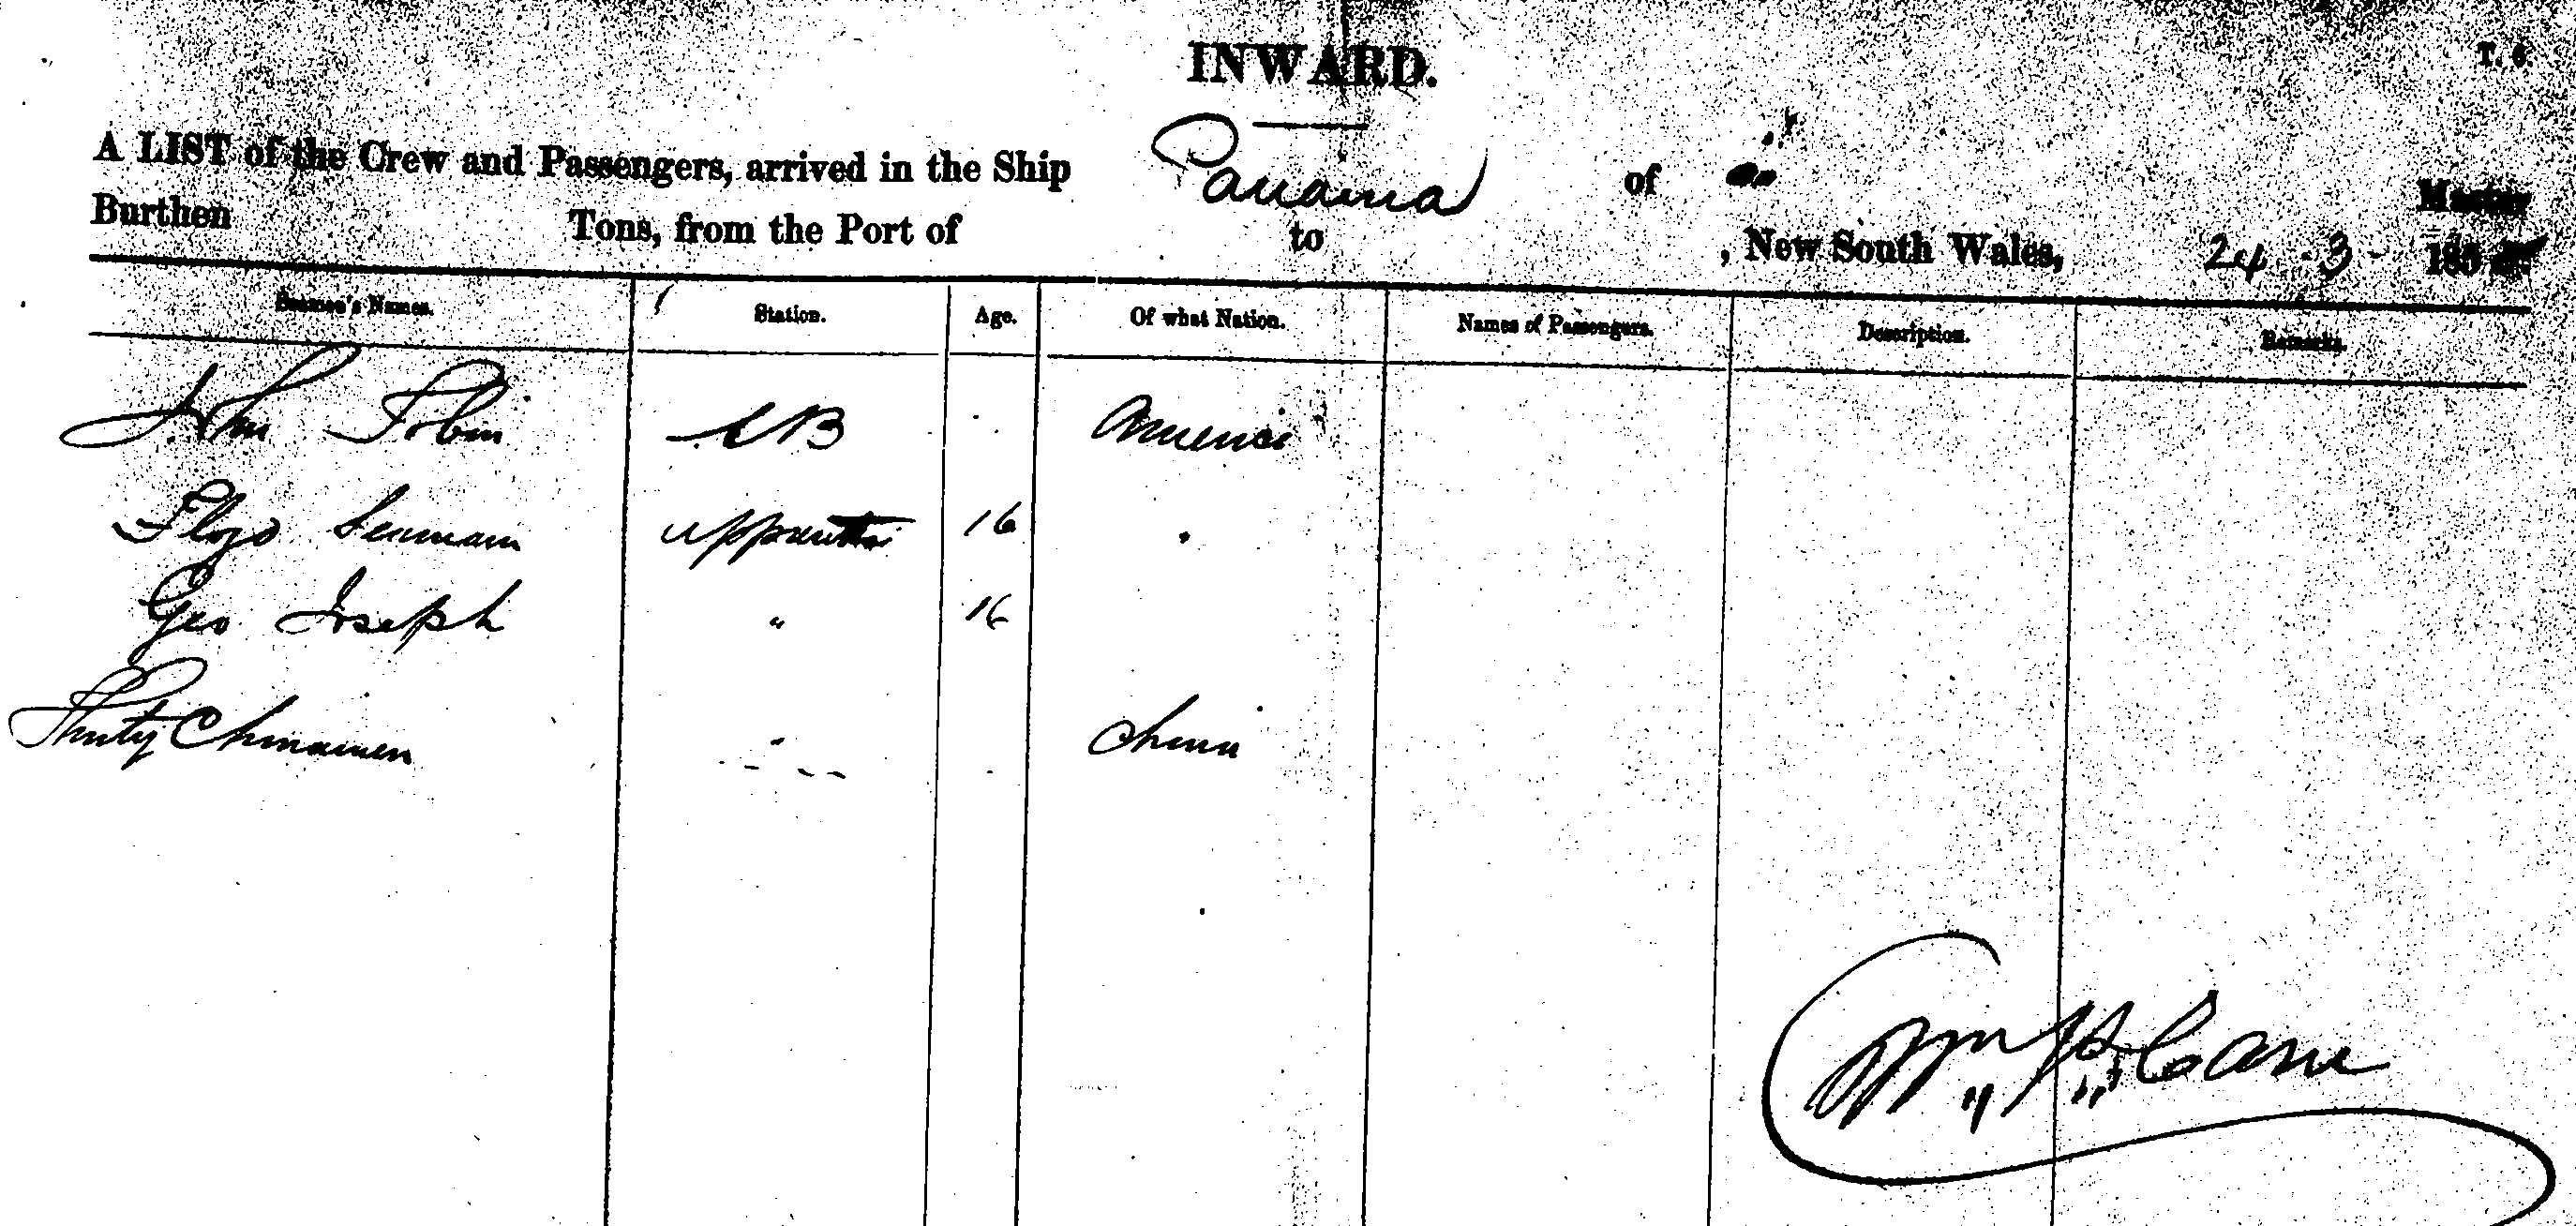 INWARD.
T. 6
A LIST of the Crew and Passengers, arrived in the Ship Panama of Master
Burthen Tons, from the Port of to , New South Wales, 24 - 3 - 185
Seamen's Names. Station. Age. Of what Nation. Names of Passengers. Description. Remarks.
John Tobin AB America
Seaman 16 "
Geo Joseph " 16
Thirty Chinamen " China
Wm H Cann